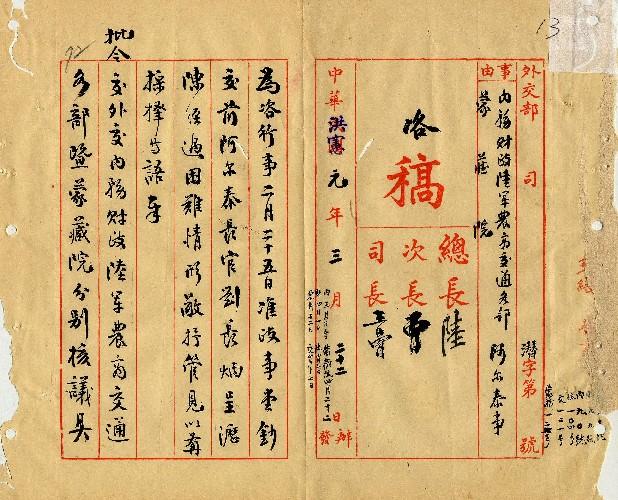 13
外交部 司 潛字第 號
事由
內務財政陸軍農商交通各部 阿尔泰事
蒙藏院
咨
稿
總長陸
次長曹
司長
中華洪憲元年三月二十二日 辦發
為咨行事二月二十五日准政事堂鈔
交前阿尔泰長官劉長炳呈瀝
陳經過困難情形敬抒管見以冀
採擇等語奉
批令
交外交內務財政陸軍農商交通
各部暨蒙藏院分別核議具
92